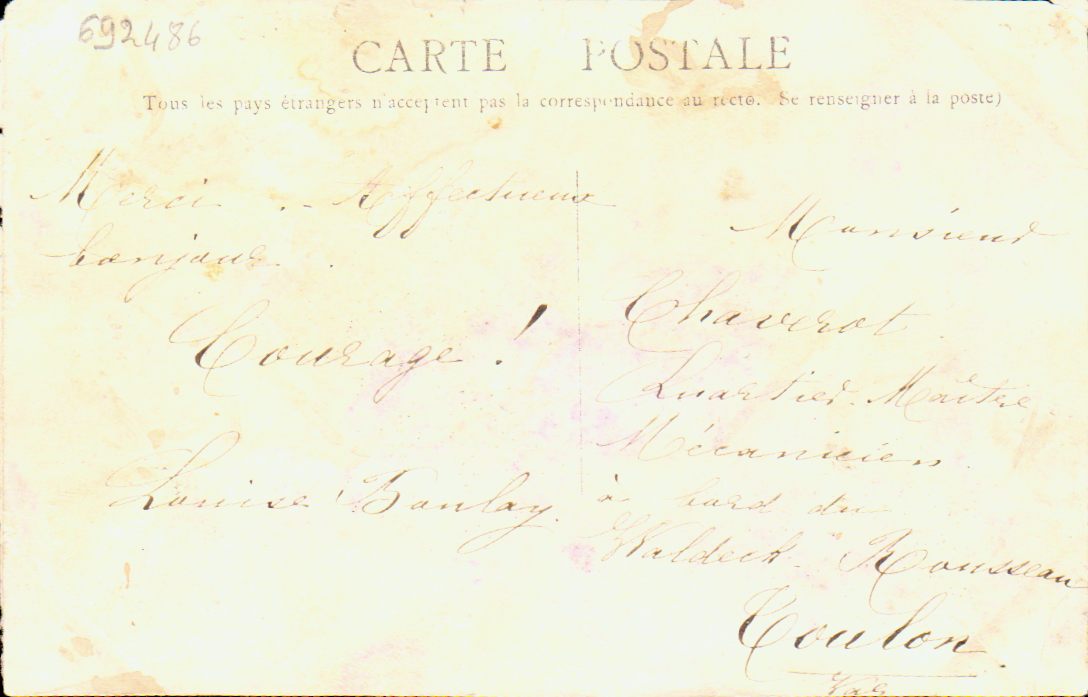 692486
CARTE POSTALE
Tous les pays étrangers n'acceptent pas la correspondance au recto. Se renseigner à la poste)
Merci. - Affectueux
bonjour.
Courage !
Louise Boulay.
Monsieur
Chaverot
Quartier-Maître
Mécanicien
à bord du
Waldeck-Rousseau
Toulon
Var